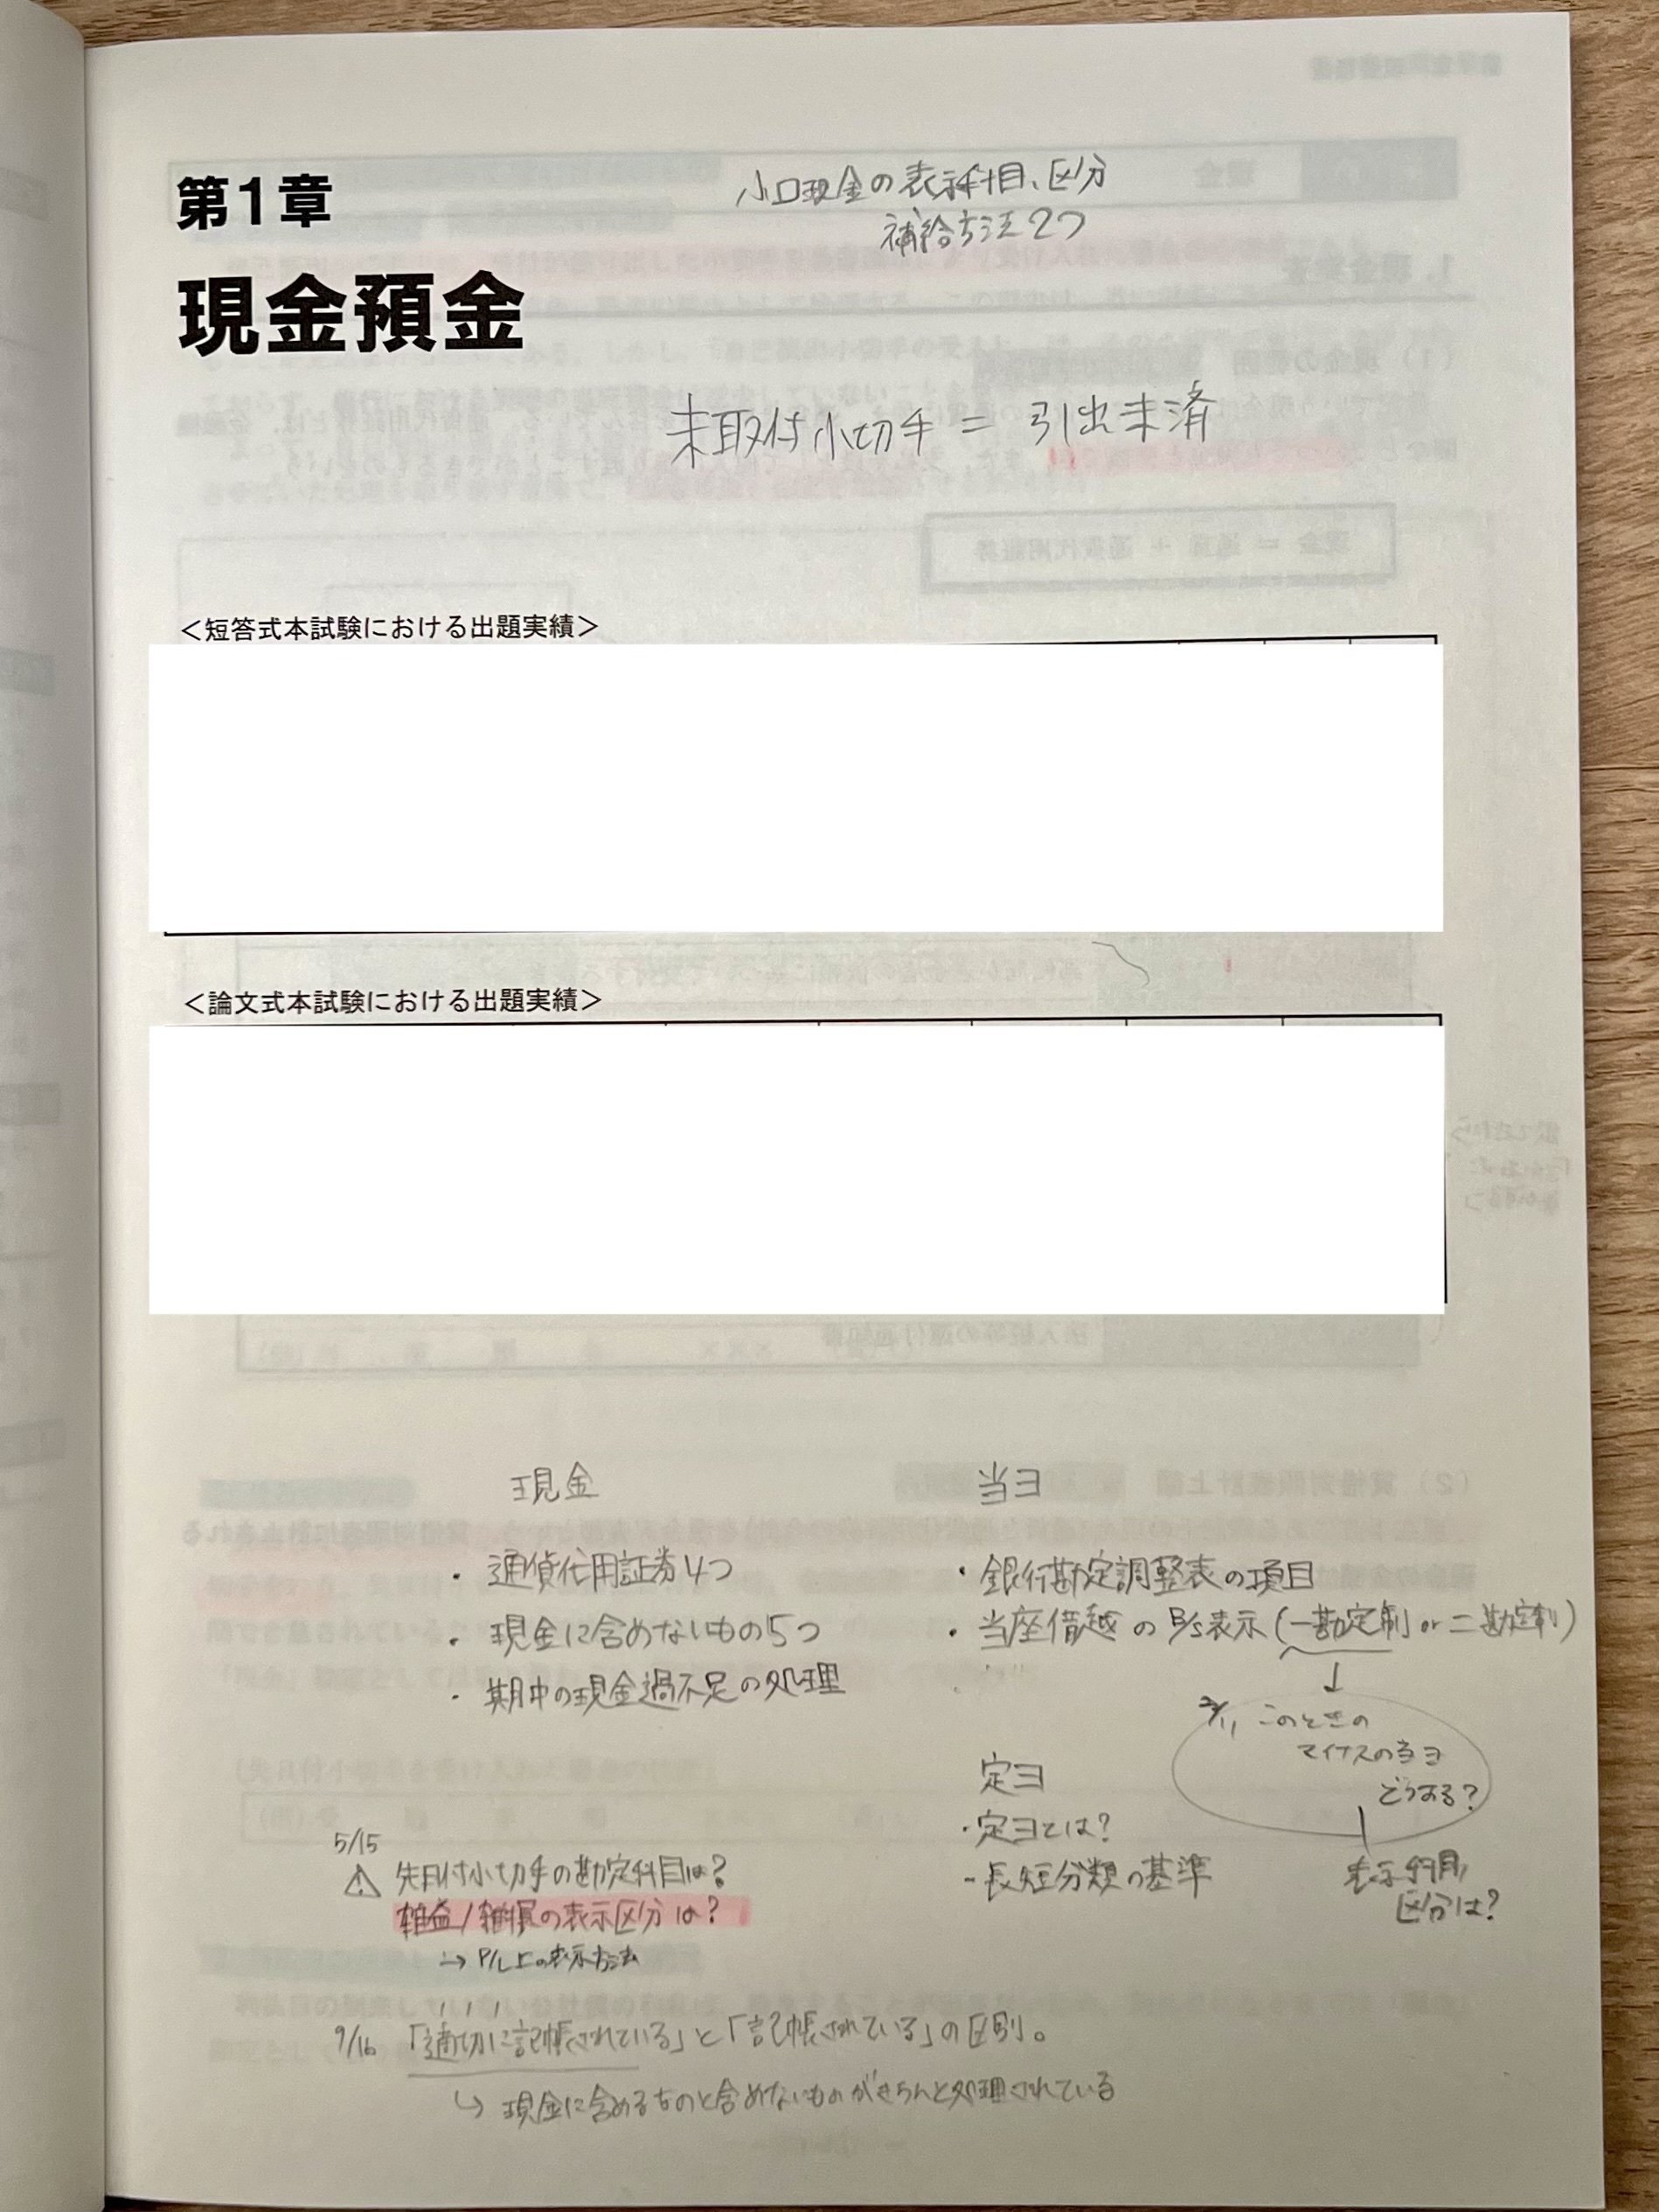 小口現金の表示科目、区分
補給方法2つ
第1章
現金預金
未取付小切手 = 引出未済
＜短答式本試験における出題実績＞
＜論文式本試験における出題実績＞
現金
・通貨代用証券4つ
・現金に含めないもの5つ
・期中の現金過不足の処理
当ヨ
・銀行勘定調整表の項目
・当座借越のB/S表示(一勘定制or二勘定制)
↓
このときの
マイナスの当ヨ
どうする?
表示科目,
区分は?
定ヨ
・定ヨとは?
・長短分類の基準
5/15
⚠ 先日付小切手の勘定科目は?
雑益/雑損の表示区分は?
→ P/L上の表示方法
9/16 「適切に記帳されている」と「記帳されている」の区別。
↳ 現金に含めるものと含めないものがきちんと処理されている